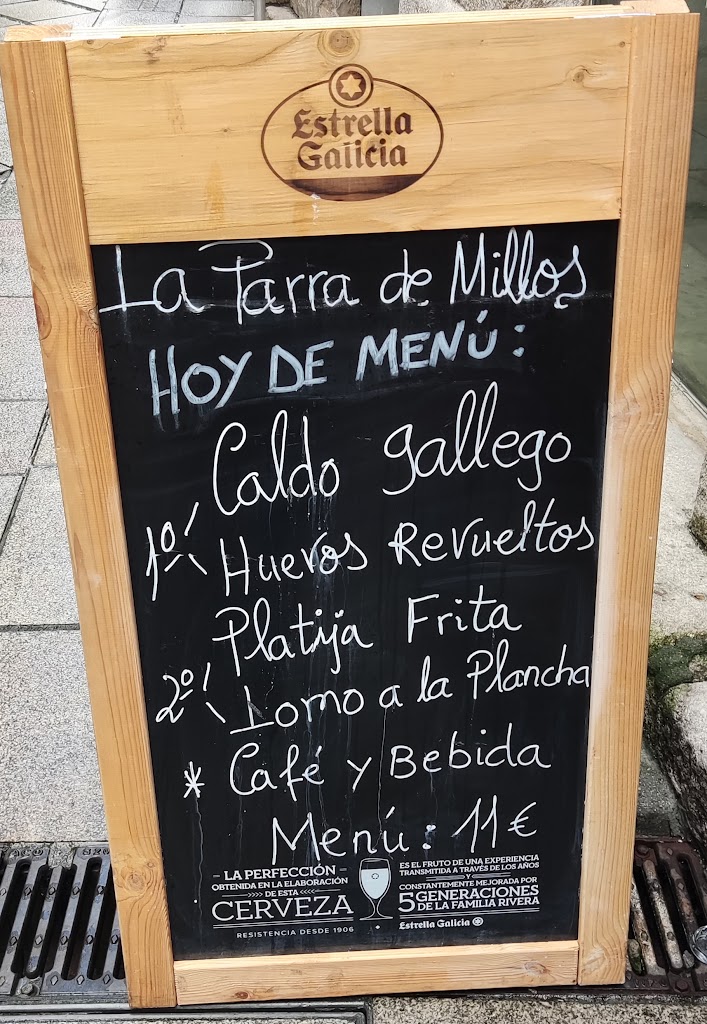 Estrella
Galicia
La Parra de Millos
HOY DE MENÚ:
Caldo gallego
1º
Huevos Revueltos
Platija Frita
2º
Lomo a la Plancha
* Café y Bebida
Menú: 11€
LA PERFECCIÓN
OBTENIDA EN LA ELABORACIÓN
>>>> DE ESTA <<<<
CERVEZA
RESISTENCIA DESDE 1906
ES EL FRUTO DE UNA EXPERIENCIA
TRANSMITIDA A TRAVÉS DE LOS AÑOS
Y
CONSTANTEMENTE MEJORADA POR
5 GENERACIONES
DE LA FAMILIA RIVERA
Estrella Galicia